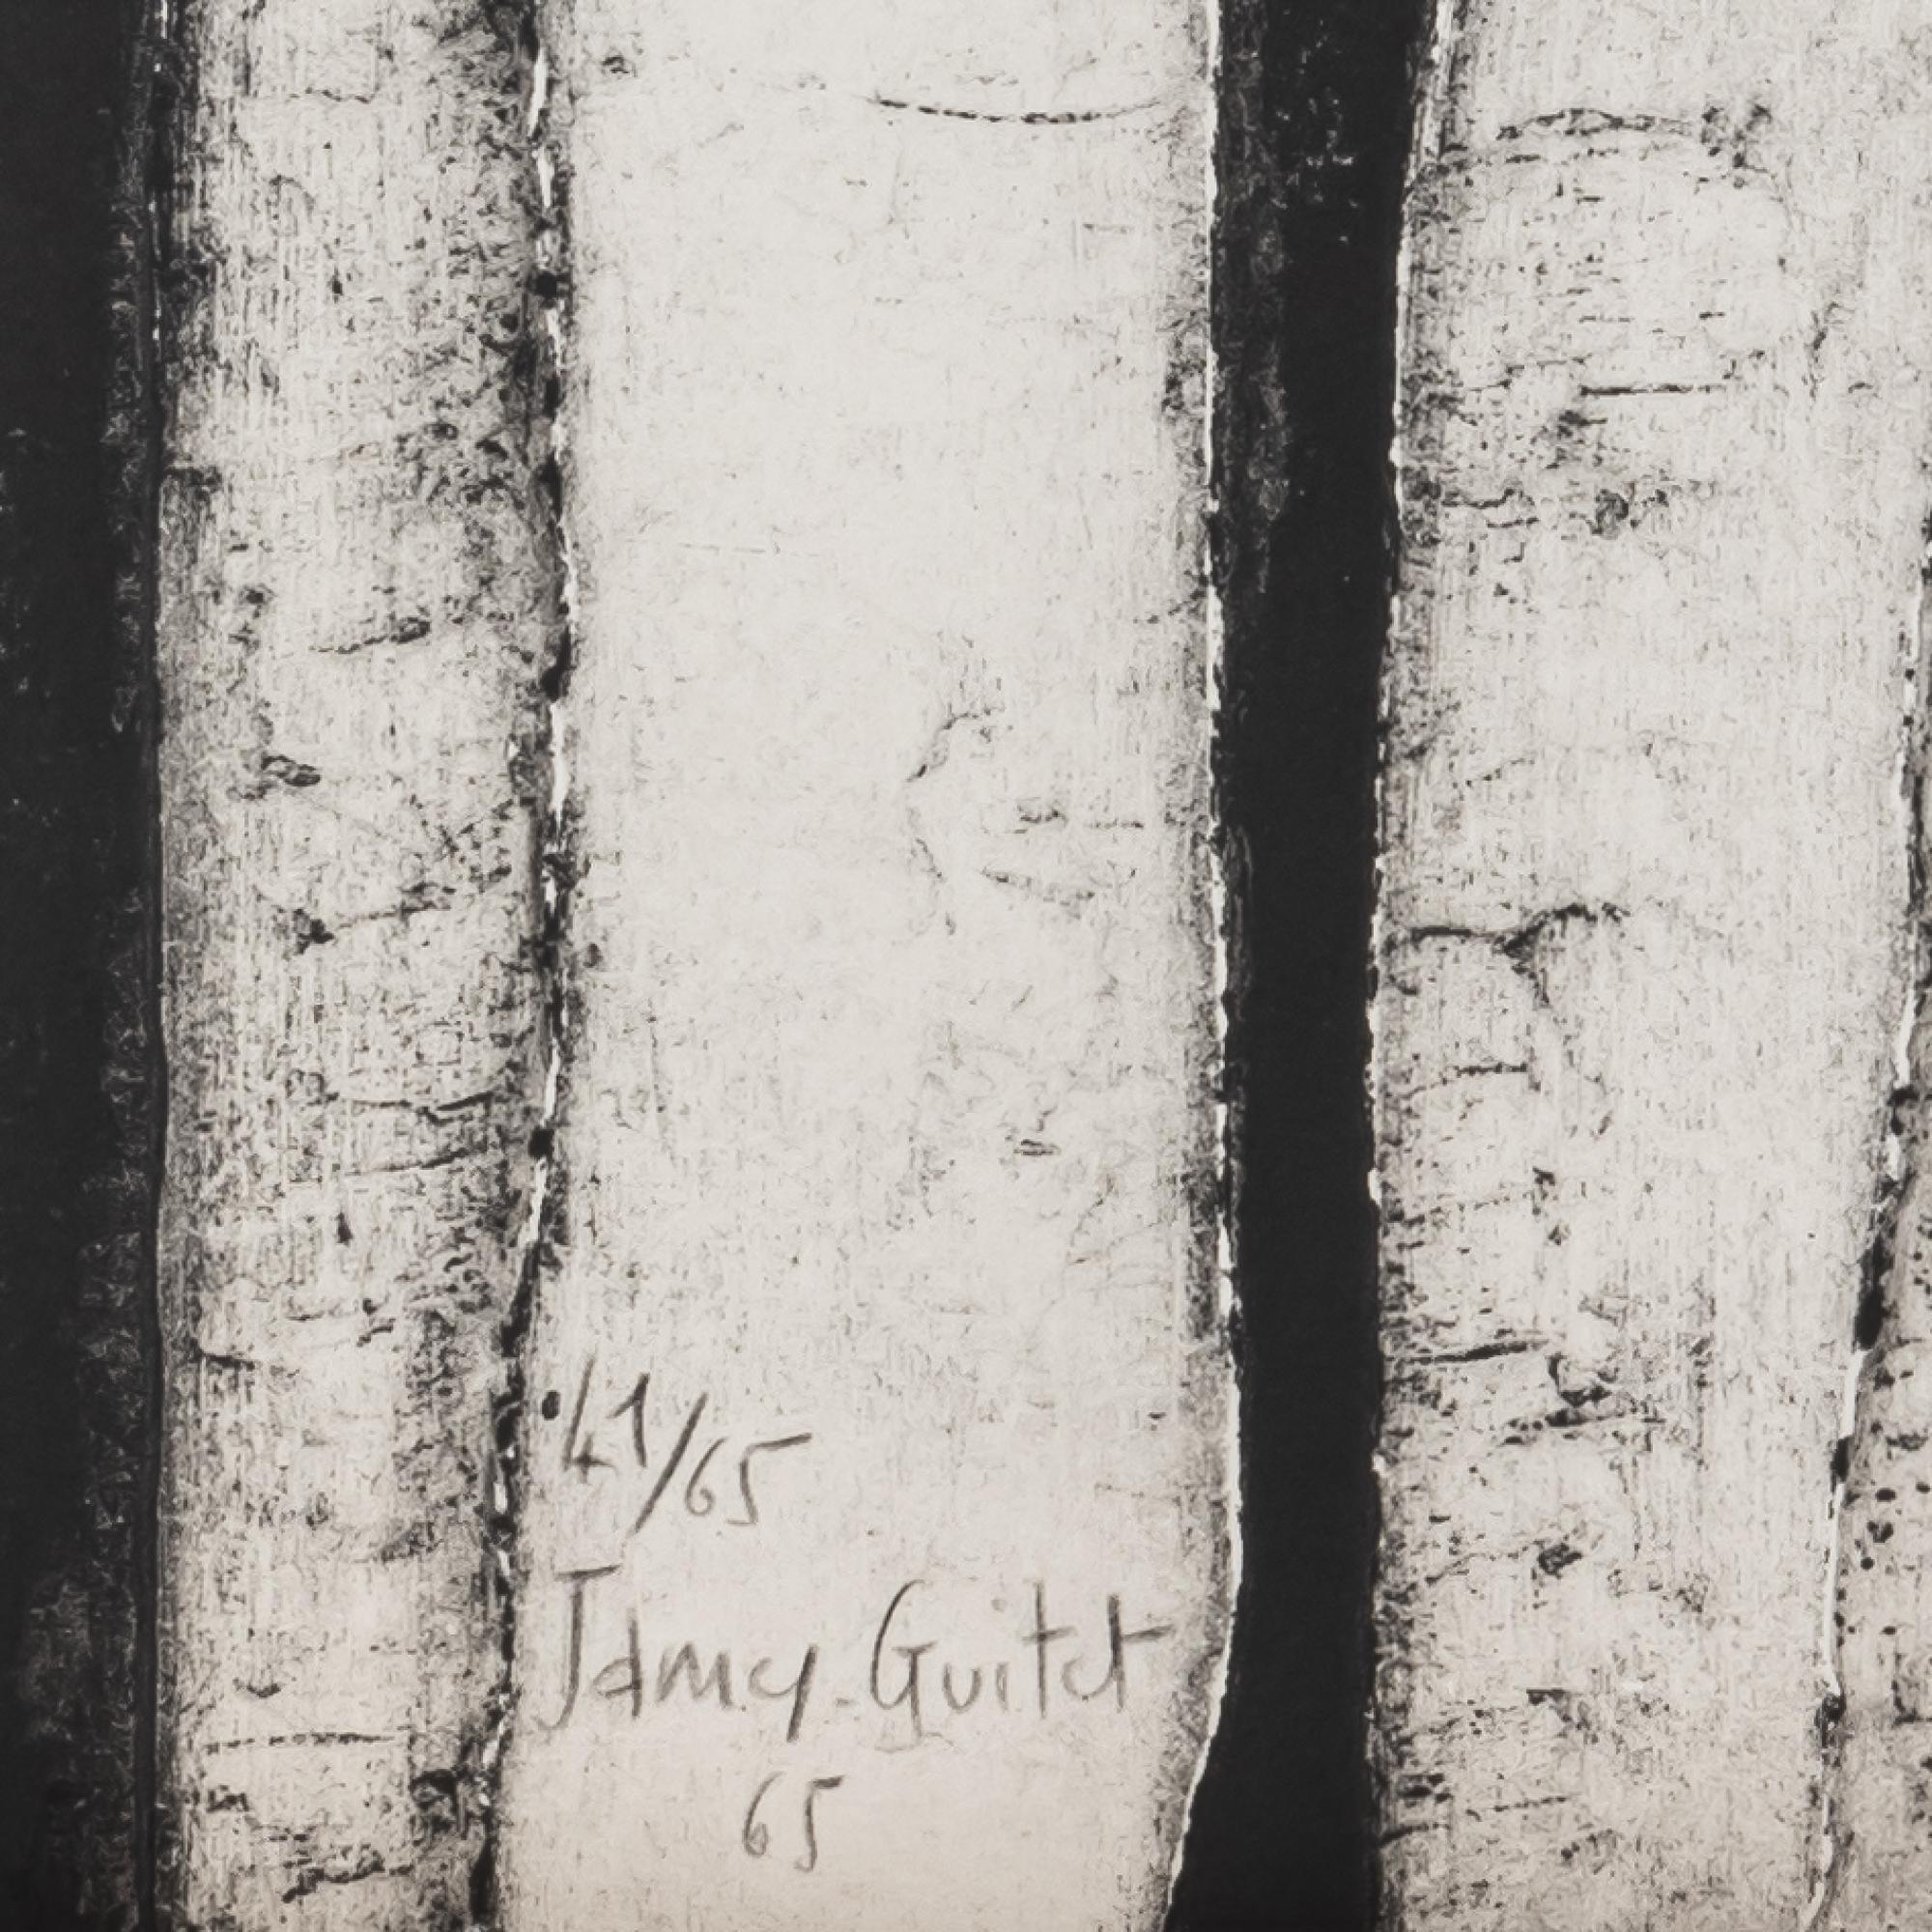 41/65
Jamy-Guitet
65